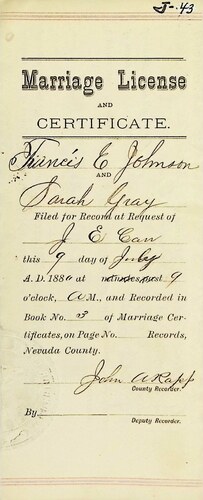 J-43
Marriage License
AND
CERTIFICATE.
Francis E Johnson
AND
Sarah Gray
Filed for Record at Request of
J E Carr
this 9 day of July
A. D. 188 at minutes past 9
o'clock, A M., and Recorded in
Book No. 3 of Marriage Cer-
tificates, on Page No. Records,
Nevada County.
John A Rapp
County Recorder.
By
Deputy Recorder.